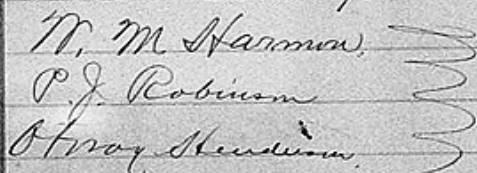 W. M Harmon.
P. J. Robinson
Otway Henderson